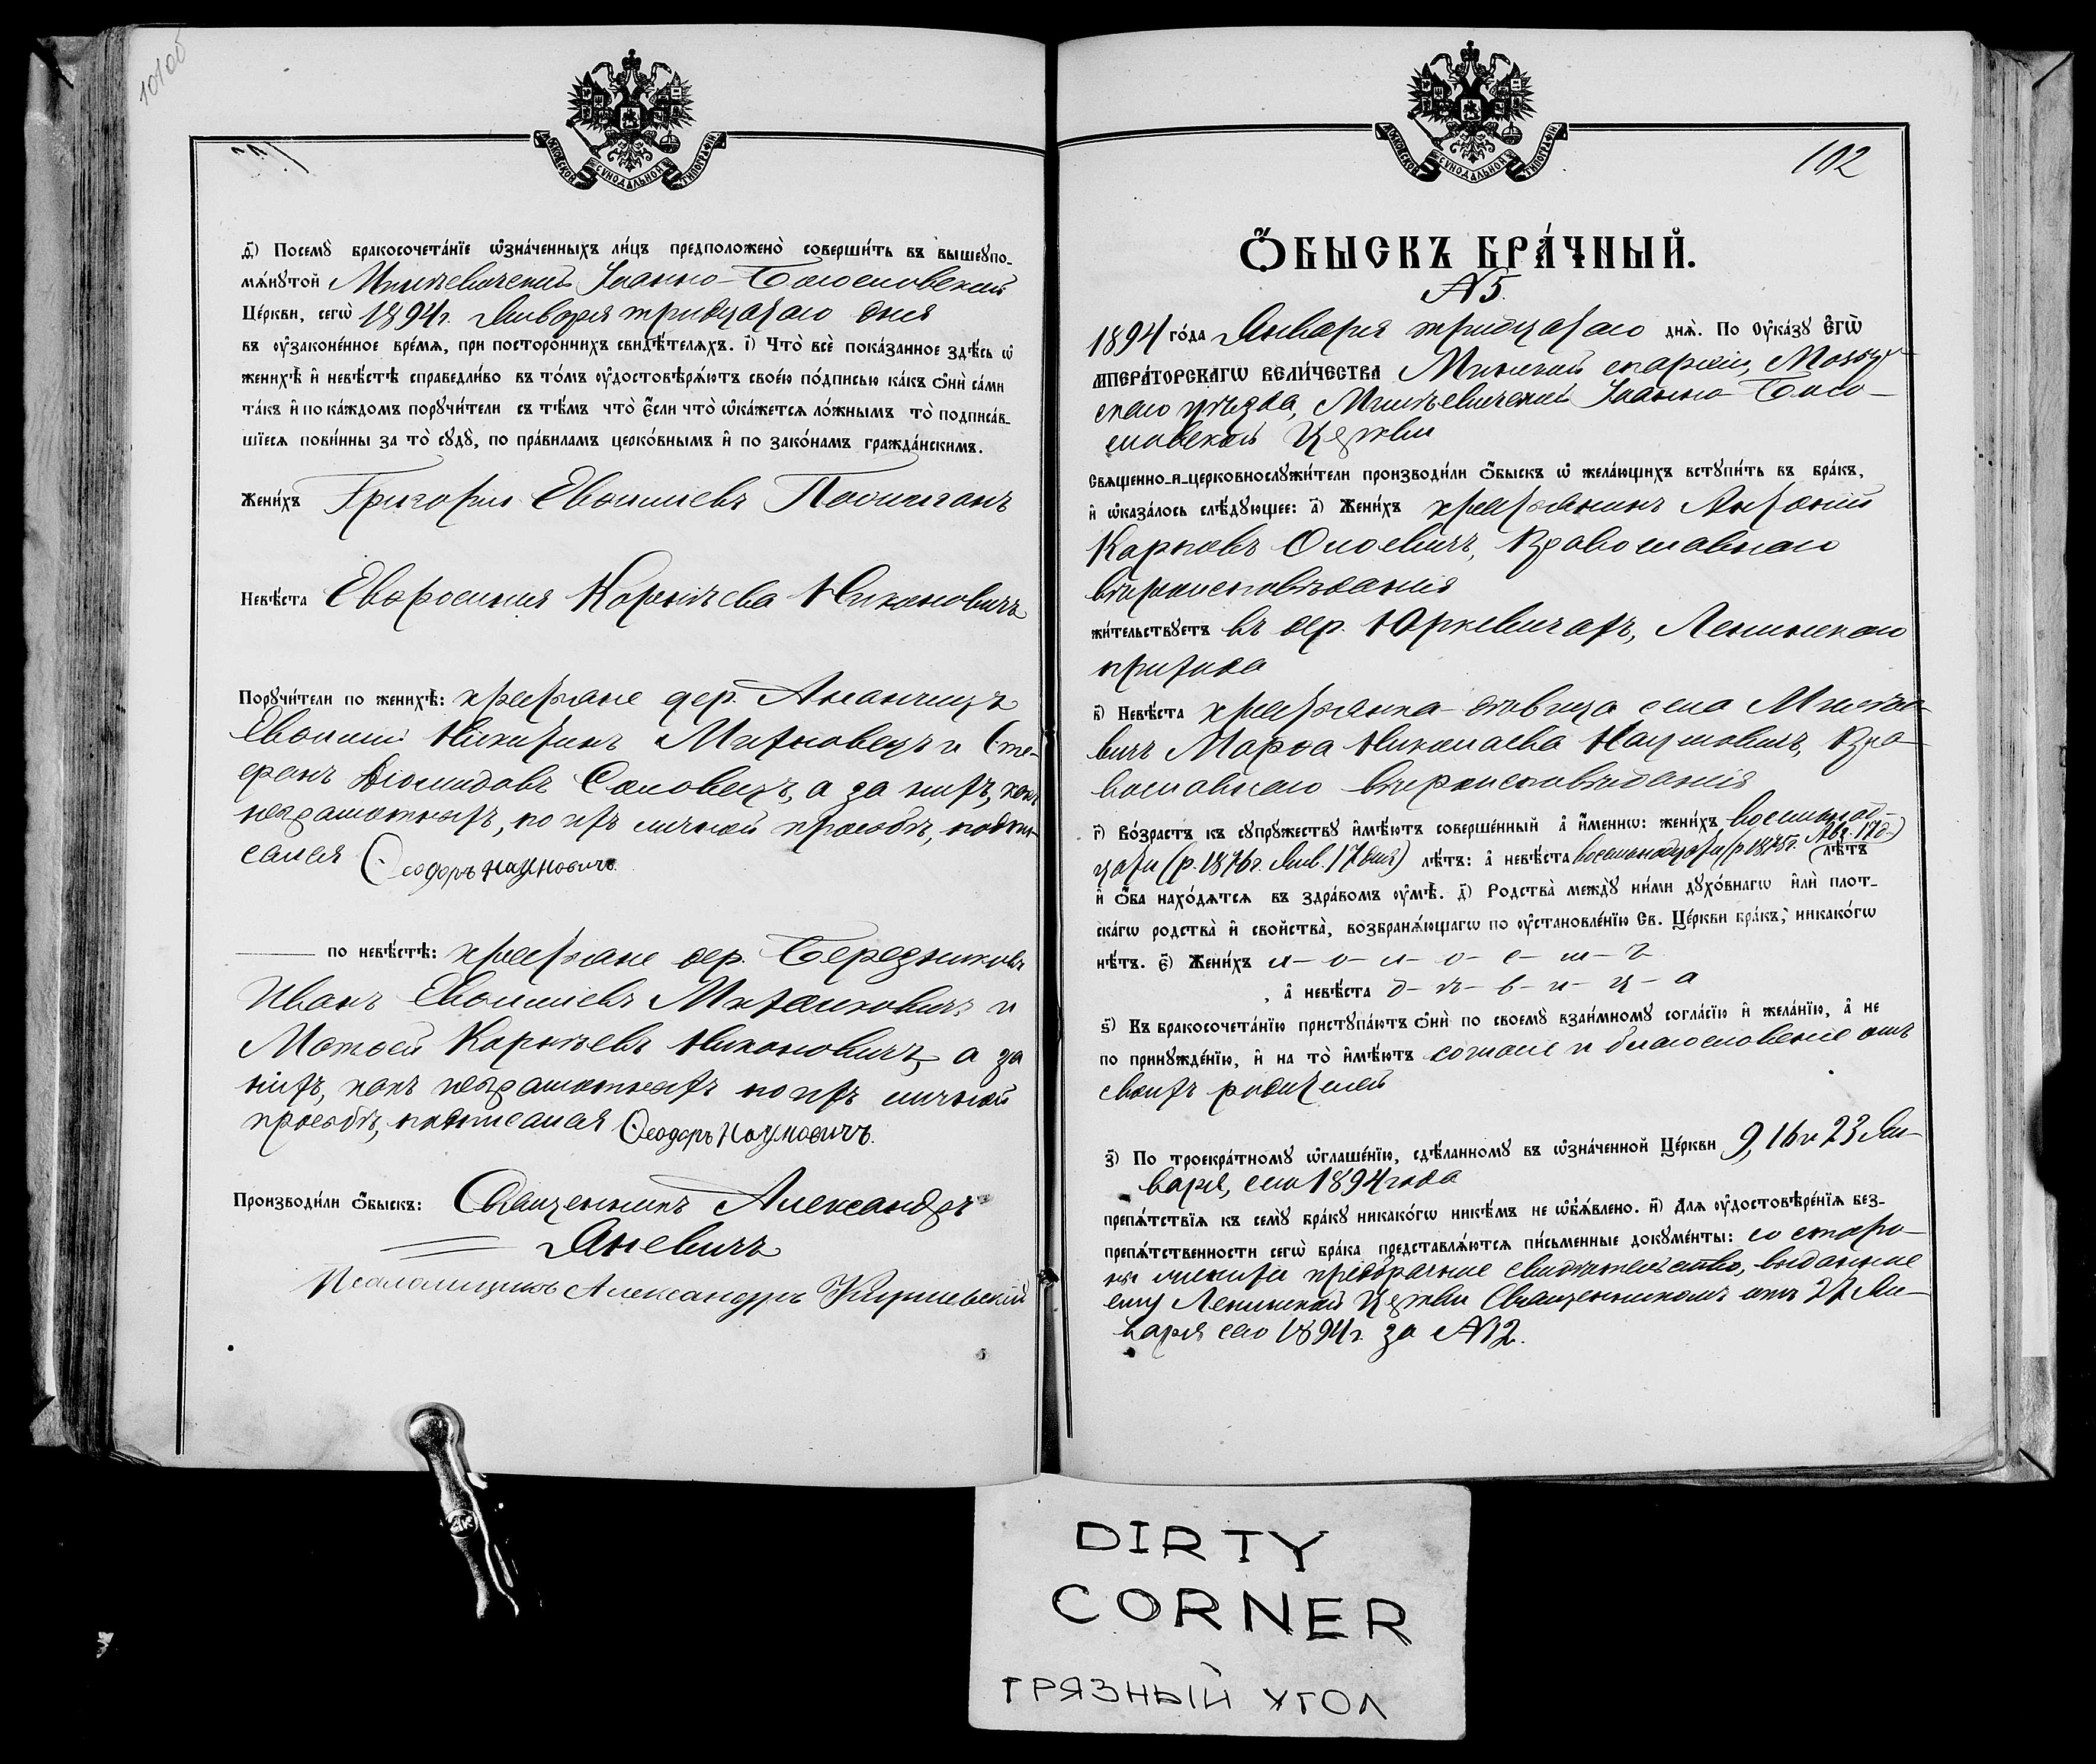 101об
МОСКОВСКОЙ СУНОДАЛЬНОЙ ТИПОГРАФІИ
ѳ҃) Посемꙋ̀ бракосочета́нїе ѡ҆зна́ченныхъ ли́цъ предположено̀ соверши́ть въ вышеꙋпо-
мѧ́нꙋтой Милевичской Іоанно-Богословской
Це́ркви, сегѡ̀ 1894 г. Января тридцатаго дня
въ ᲂу҆зако́ненное вре́мѧ, при посторо́ннихъ свидѣ́телѧхъ. і҃) Что̀ всѐ пока́занное здѣ́сь ѡ҆
женихѣ̀ и҆ невѣ́стѣ справедли́во въ то́мъ ᲂу҆достовѣрѧ́ютъ свое́ю по́дписью ка́къ ѻ҆нѝ са́ми
та́къ и҆ по ка́ждомъ порꙋчи́тели съ тѣ́мъ что̀ є҆́сли что̀ ѡ҆ка́жетсѧ ло́жнымъ то̀ подписа́в-
шїесѧ пови́нны за то̀ сꙋдꙋ̀, по пра́виламъ церко́внымъ и҆ по зако́намъ гражда́нскимъ.
Жени́хъ Григорій Евѳиміевъ
Невѣ́ста Евфросинія Корнѣева Никоновичъ
Порꙋчи́тели по женихѣ̀: крестьяне дер. Ананчицъ
Евѳимій Никитинъ Махновецъ и Сте-
фанъ Діомидовъ Соловецъ, а за нихъ, какъ
неграмотныхъ, по ихъ личной просьбѣ, подпи-
сался Ѳеодоръ Наумовичъ.
по невѣ́стѣ: крестьяне дер. Березняковъ
Иванъ Евѳиміевъ и
Матѳей Корнѣевъ Никоновичъ, а за
нихъ, какъ неграмотныхъ по ихъ личной
просьбѣ, подписался Ѳеодоръ Наумовичъ.
Производи́ли ѻ҆́быскъ: Священникъ Александръ
Яневичъ
Псаломщикъ Александръ
МОСКОВСКОЙ СУНОДАЛЬНОЙ ТИПОГРАФІИ
102
Ѻ҆́БЫСКЪ БРА́ЧНЫЙ.
№ 5.
1894 го́да Января тридцатаго днѧ̀. По ᲂу҆ка́зꙋ Є҆гѡ̀
ИМПЕРА́ТОРСКАГѠ ВЕЛИ́ЧЕСТВА Минской епархіи, Мозыр-
скаго уѣзда, Милевичской Іоанно-Бого-
словской Церкви
Свѧщенно-и-церковнослꙋжи́тели производи́ли ѻ҆́быскъ ѡ҆ жела́ющихъ встꙋпи́ть въ бра́къ,
и҆ ѡ҆каза́лось слѣ́дꙋющее: а҃) Жени́хъ крестьянинъ Антоній
Карповъ Православнаго
вѣроисповѣданія
жи́тельствꙋетъ въ дер. Юркевичахъ, Ленинскаго
прихода
в҃) Невѣ́ста крестьянка-дѣвица села Милѣ-
вичъ Марѳа Николаева Наумовичъ, Пра-
вославнаго вѣроисповѣданія
г҃) Во́зрастъ къ сꙋпрꙋ́жествꙋ и҆мѣ́ютъ соверше́нный а҆̀ и҆́меннѡ: жени́хъ восемьнад-
цати (р. 1876 г. Янв. 17 дня) лѣ́тъ: а҆̀ невѣ́ста восемьнадцати (р. 1875 г. Авг. 17 д.) лѣ́тъ
и҆ ѻ҆́ба нахо́дѧтсѧ въ здра́вомъ ᲂу҆мѣ̀. д҃) Родства̀ междꙋ̀ ни́ми дꙋхо́внагѡ и҆лѝ плот-
ска́гѡ родства̀ и҆ сво́йства̀, возбранѧ́ющагѡ по ᲂу҆становле́нїю Св. Це́ркви бра́къ, никако́гѡ
нѣ́тъ. є҃) Жени́хъ х-о-л-о-с-т-ъ
а҆̀ невѣ́ста д-ѣ-в-и-ц-а
ѕ҃) Къ бракосочета́нїю пристꙋпа́ютъ ѻ҆нѝ по своемꙋ̀ взаи́мномꙋ согла́сїю и҆ жела́нїю, а҆̀ не
по принꙋжде́нїю, и҆ на то̀ и҆мѣ́ютъ согласіе и благословеніе отъ
своихъ родителей
з҃) По троекра́тномꙋ ѡ҆глаше́нїю, сдѣ́ланномꙋ въ ѡ҆зна́ченной Це́ркви 9, 16 и 23 Ян-
варя, сего 1894 года
препѧ́тствїѧ къ семꙋ̀ бра́кꙋ никако́гѡ никѣ́мъ не ѡ҆б̾ѧ́влено. и҃) Длѧ ᲂу҆достовѣре́нїѧ без-
препѧ́тственности сегѡ̀ бра́ка представлѧ́ютсѧ пи́сьменные докꙋме́нты: со сторо-
ны жениха предбрачное свидѣтельство, выданное
ему Ленинской Церкви Священникомъ отъ 27 Ян-
варя сего 1894 г. за № 12.
DIRTY
CORNER
ГРЯЗНЫЙ УГОЛ